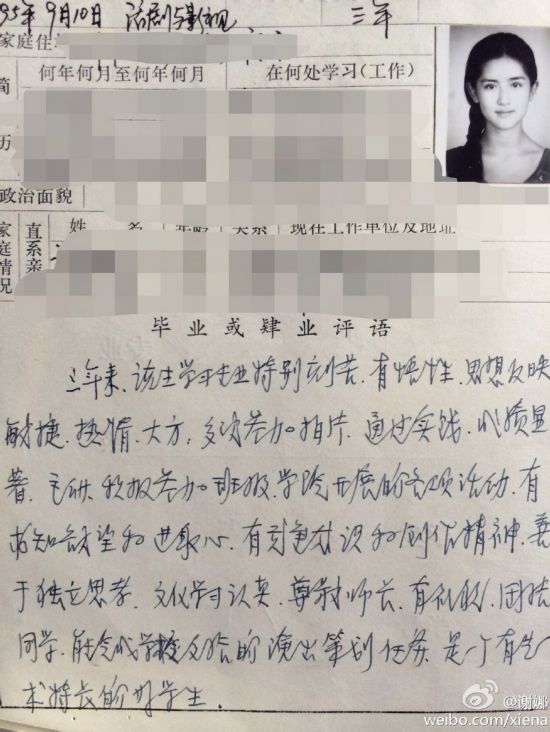 95年9月10日 话剧与影视 三年
家庭住
简 何年何月至何年何月 在何处学习(工作)
历
政治面貌
家庭情况 直系亲 姓 名 年龄 关系 现在工作单位及地址
毕业或肄业评语
三年来、该生学习专业特别刻苦、有悟性、思想反映
敏捷、热情、大方、多次参加拍片、通过实践、成质量
著、主研、积极参加班级、学院开展的各项活动、有
求知欲望和进取心、有刻色意识和创作精神、善
于独立思考、文化学习认真、尊敬师长、有礼貌、团结
同学、能完成学校交给的演出策划任务、是一个有艺
术特长的好学生.
@谢娜
weibo.com/xiena